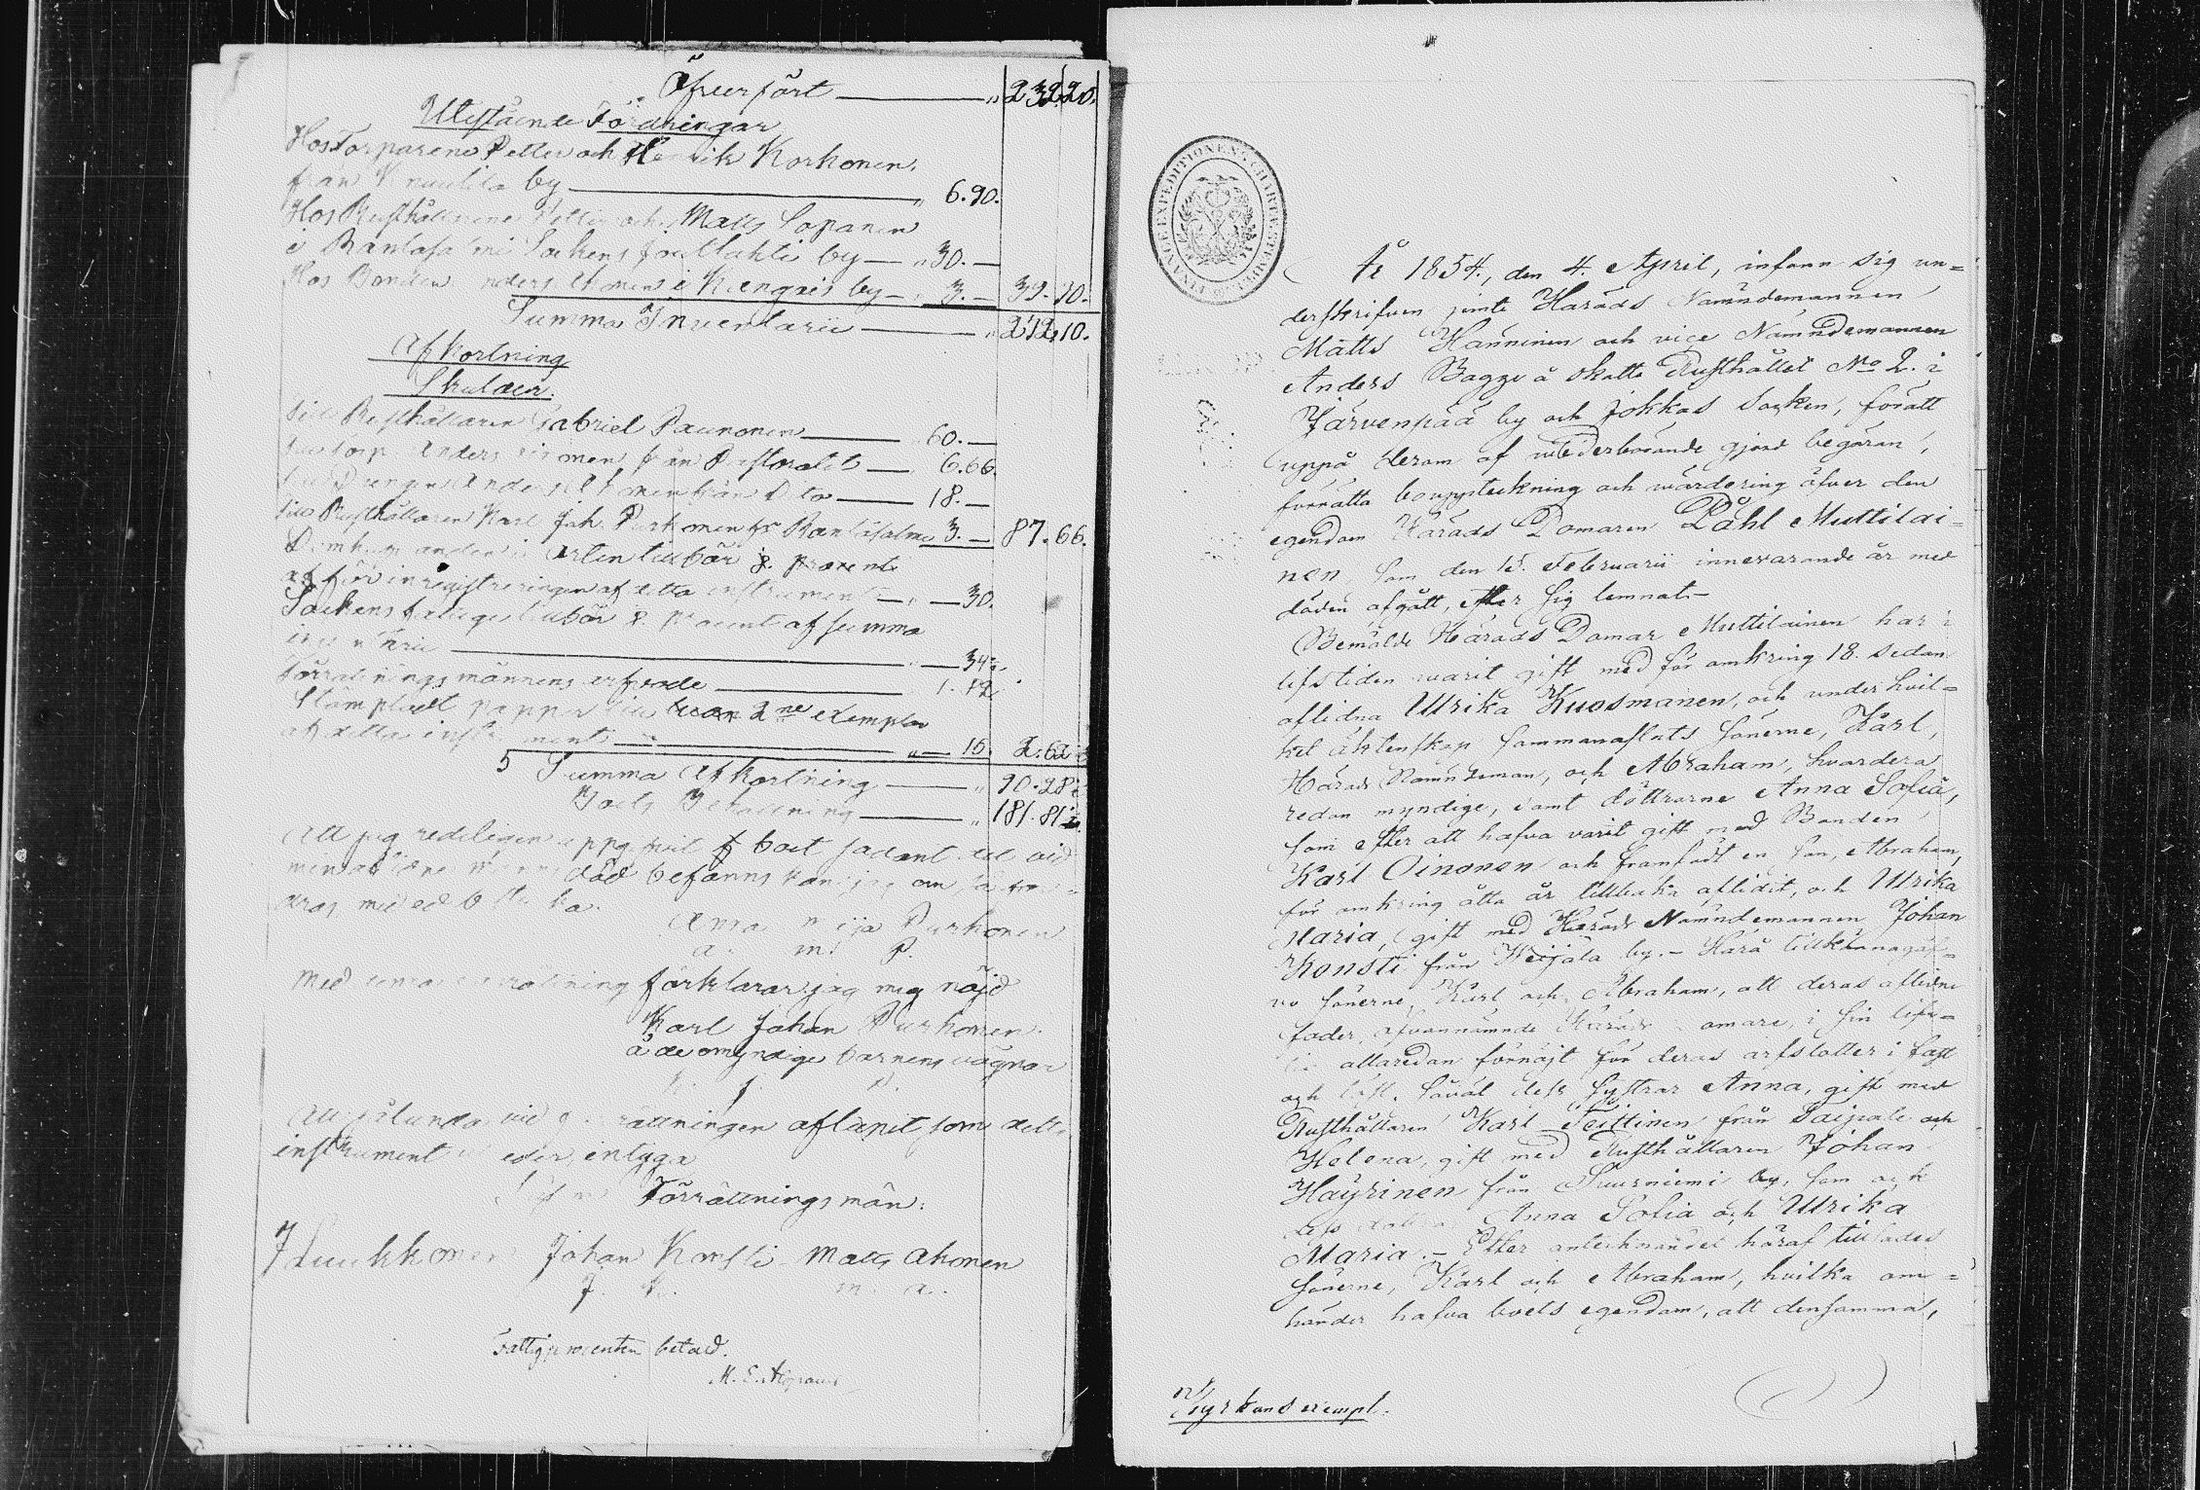 Öfverfört — " 232.20.
Utestående Fordringar
Hos Torparene Petter och Henrik Korhonen,
från Knuutila by — " 6.90.
Hos Rusthållarene Petter och Matts Sopanen
i Rantasalmi Sockens Joutslahti by — " 30. —
Hos Bonden Anders Ahonen i Kangais by — " 3. — 39.90.
Summa Inventarii — " 272.10.
Afkortning
Skulder.
Till Rusthållaren Gabriel Paunonen — 60. —
Anders från — 6.66.
Drengen Anders Ahonen från Dito — 18. —
Till Rusthållaren Karl Joh. Purhonen fr. Rantasalmi 3. — 87.66.
tillkommer procent
för inregistreringen af detta instrument — " — 30.
Sockens fattige tillkommer procent af summa
— " — 34
Förrättningsmännens arfvode — 1.
Stämpladt papper till 2ne exemplar
af detta instrument — " — 15. 2.62
Summa Afkortning — " 90.28
Boets Behållning — " 181.81
Att jag redeligen uppgifvit boet sådant det vid
min aflidne mans död befanns kan jag om så fordras,
med ed bekräfta.
Anna Purhonen
a. m. P.
Med denna förrättning förklarar jag mig nöjd
Karl Johan Purhonen
å de omyndige barnens vägnar
K. J. P.
Att sålunda vid förrättningen aflupit som detta
instrument utvisar, intyga
Förrättningsmän:
Johan Konsti Matts Ahonen
J. K. m. a.
Fattigprocenten betald.
FINANCE EXPEDITIONENS CHARTÆ
År 1854, den 4. April, infann sig un=
derskrifven jemte Härads Nämndemannen
Matts Hänninen och vice Nämndemannen
Anders Bagge å skatte Rusthållet No 2. i
Järvenpää by och Jokkas Socken, för att
uppå derom af vederbörande gjord begäran,
förrätta bouppteckning och värdering öfver den
egendom Härads Domaren Påhl Muttilai=
nen, som den 15. Februarii innevarande år med
döden afgått, efter sig lemnat. —
Bemälde Härads Domar Muttilainen har i
lifstiden warit gift med för omkring 18. sedan
aflidna Ulrika Kuosmanen, och under hvil=
ket äktenskap sammanaflats sönerne, Karl,
Härads Nämndeman, och Abraham, hvardera
redan myndige, samt döttrarne Anna Sofia,
som efter att hafva varit gift med Bonden
Karl Oinonen och framfödt en son, Abraham,
för omkring åtta år tillbaka aflidit, och Ulrika
Maria, gift med Härads Nämndemannen Johan
Konsti från Weijala by. — Härå tillkännagåf=
vo sönerne, Karl och Abraham, att deras aflidne
fader, ofvannämnde Härads Domare, i sin lifs=
tid allaredan förnöjt för deras arfslotter i fast
och löst, såväl dess systrar Anna, gift med
Rusthållaren Karl Teittinen från Saipale och
Helena, gift med Rusthållaren Johan
Häyrinen från by, som ock
dess döttrar Anna Sofia och Ulrika
Maria. — Efter antecknandet häraf tillsades
sönerne, Karl och Abraham, hvilka om=
händer hafva boets egendom, att densamma,
Kyrkans exempl.